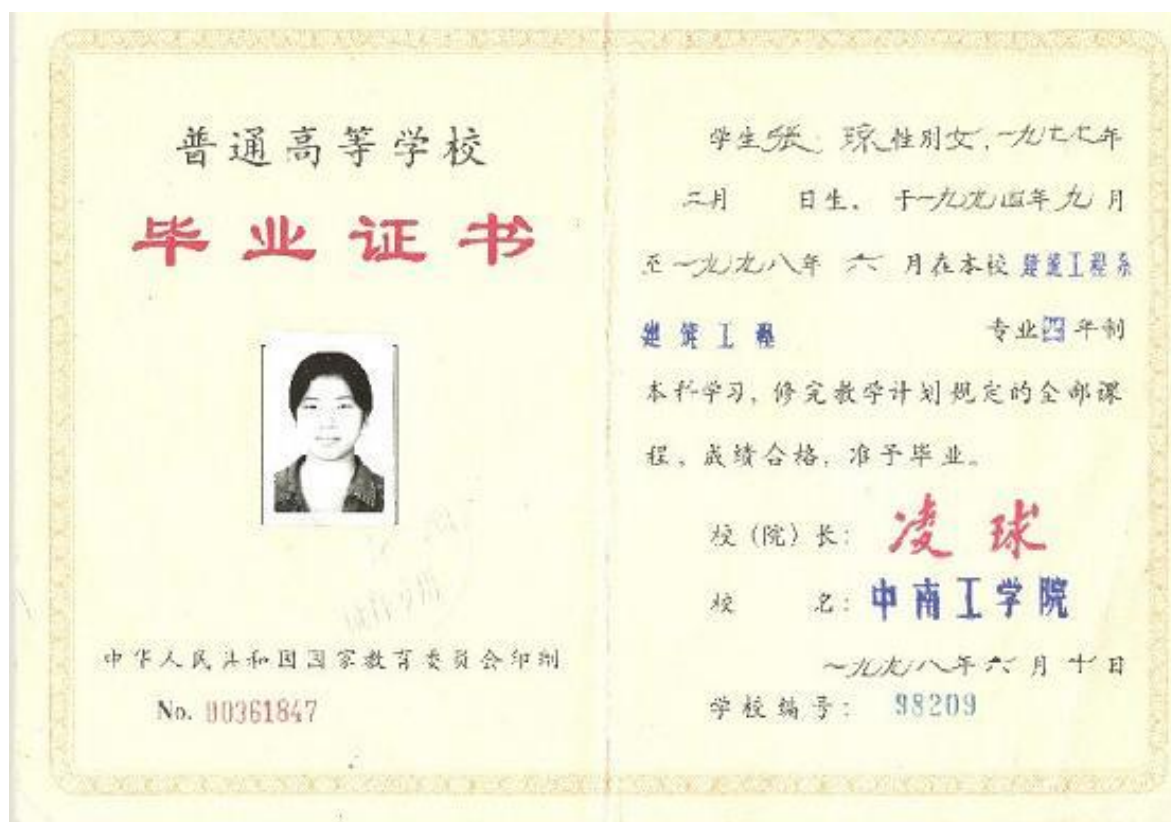 普通高等学校
毕业证书
中华人民共和国国家教育委员会印制
No. 90361847
学生张琼性别女,一九七七年
二月 日生, 于一九九四年九月
至一九九八年 六 月在本校 建筑工程系
建筑工程 专业四年制
本科学习,修完教学计划规定的全部课
程,成绩合格,准予毕业。
校(院)长: 凌球
校 名: 中南工学院
一九九八年六月十日
学校编号: 98209